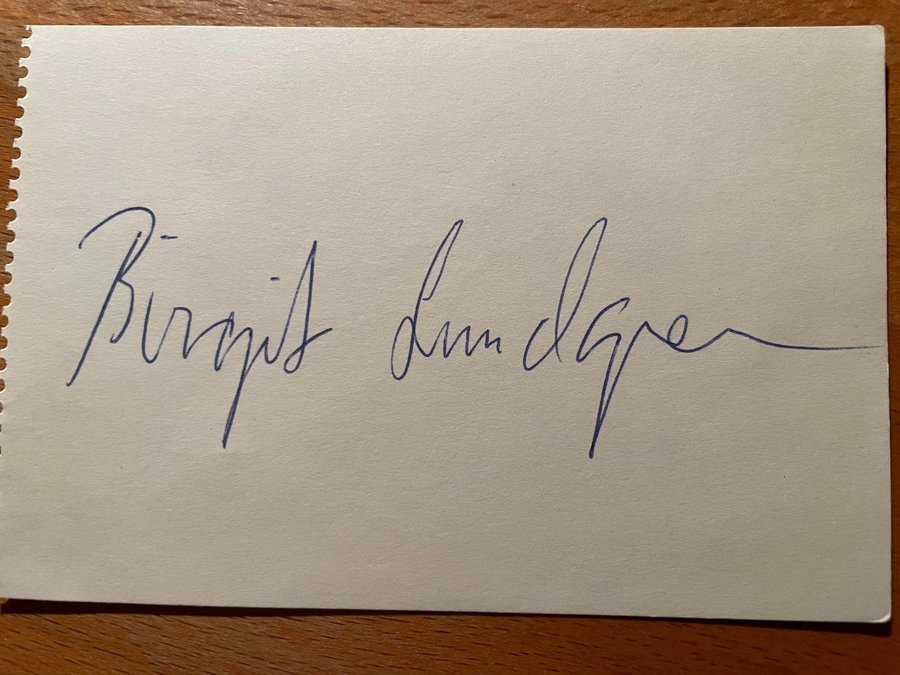 Birgit Lundgren